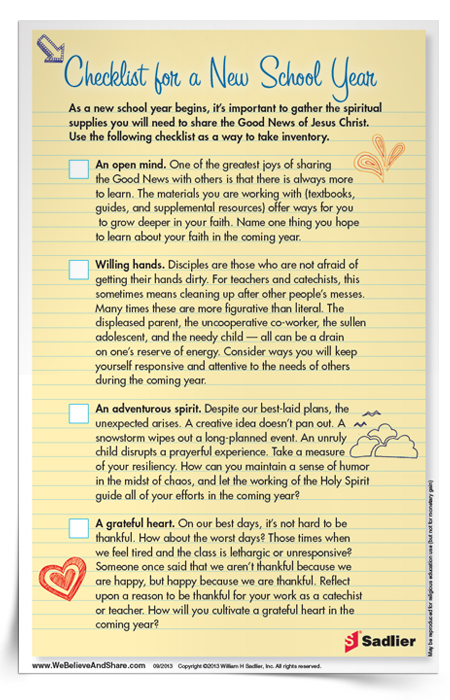 Checklist for a New School Year
As a new school year begins, it's important to gather the spiritual
supplies you will need to share the Good News of Jesus Christ.
Use the following checklist as a way to take inventory.
An open mind. One of the greatest joys of sharing
the Good News with others is that there is always more
to learn. The materials you are working with (textbooks,
guides, and supplemental resources) offer ways for you
to grow deeper in your faith. Name one thing you hope
to learn about your faith in the coming year.
Willing hands. Disciples are those who are not afraid of
getting their hands dirty. For teachers and catechists, this
sometimes means cleaning up after other people's messes.
Many times these are more figurative than literal. The
displeased parent, the uncooperative co-worker, the sullen
adolescent, and the needy child — all can be a drain
on one's reserve of energy. Consider ways you will keep
yourself responsive and attentive to the needs of others
during the coming year.
An adventurous spirit. Despite our best-laid plans, the
unexpected arises. A creative idea doesn't pan out. A
snowstorm wipes out a long-planned event. An unruly
child disrupts a prayerful experience. Take a measure
of your resiliency. How can you maintain a sense of humor
in the midst of chaos, and let the working of the Holy Spirit
guide all of your efforts in the coming year?
A grateful heart. On our best days, it's not hard to be
thankful. How about the worst days? Those times when
we feel tired and the class is lethargic or unresponsive?
Someone once said that we aren't thankful because we
are happy, but happy because we are thankful. Reflect
upon a reason to be thankful for your work as a catechist
or teacher. How will you cultivate a grateful heart in the
coming year?
May be reproduced for religious education use (but not for monetary gain)
Sadlier
www.WeBelieveAndShare.com 09/2013 Copyright ©2013 William H Sadlier, Inc. All rights reserved.